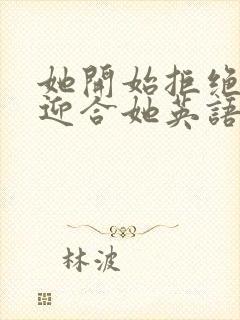 她開始拒绝
迎合她英語
林波